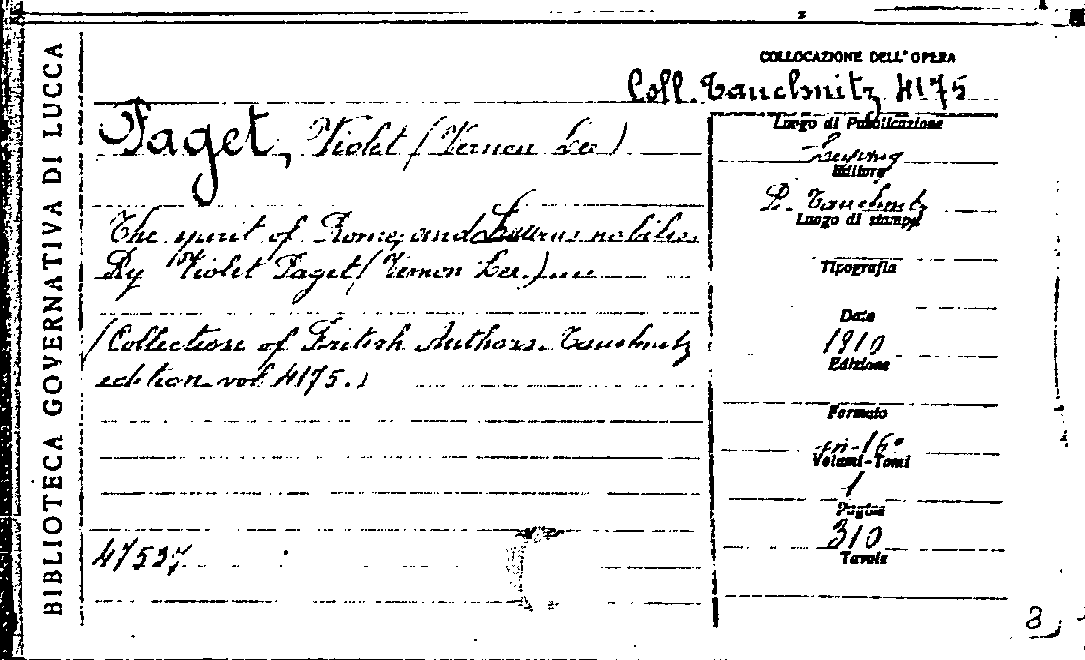 BIBLIOTECA GOVERNATIVA DI LUCCA
COLLOCAZIONE DELL'OPERA
Coll. Tauchnitz 4175
Paget, Violet (Vernon Lee)
The spirit of Rome, and Laurus nobilis.
By Violet Paget (Vernon Lee.)
(Collection of British Authors. Tauchnitz
edition vol 4175.)
47527
Luogo di Pubblicazione
Leipzig
Editore
B. Tauchnitz
Luogo di stampa
Tipografia
Date
1910
Edizione
Formato
in-16°
Volumi-Tomi
1
Pagine
310
Tavole
8